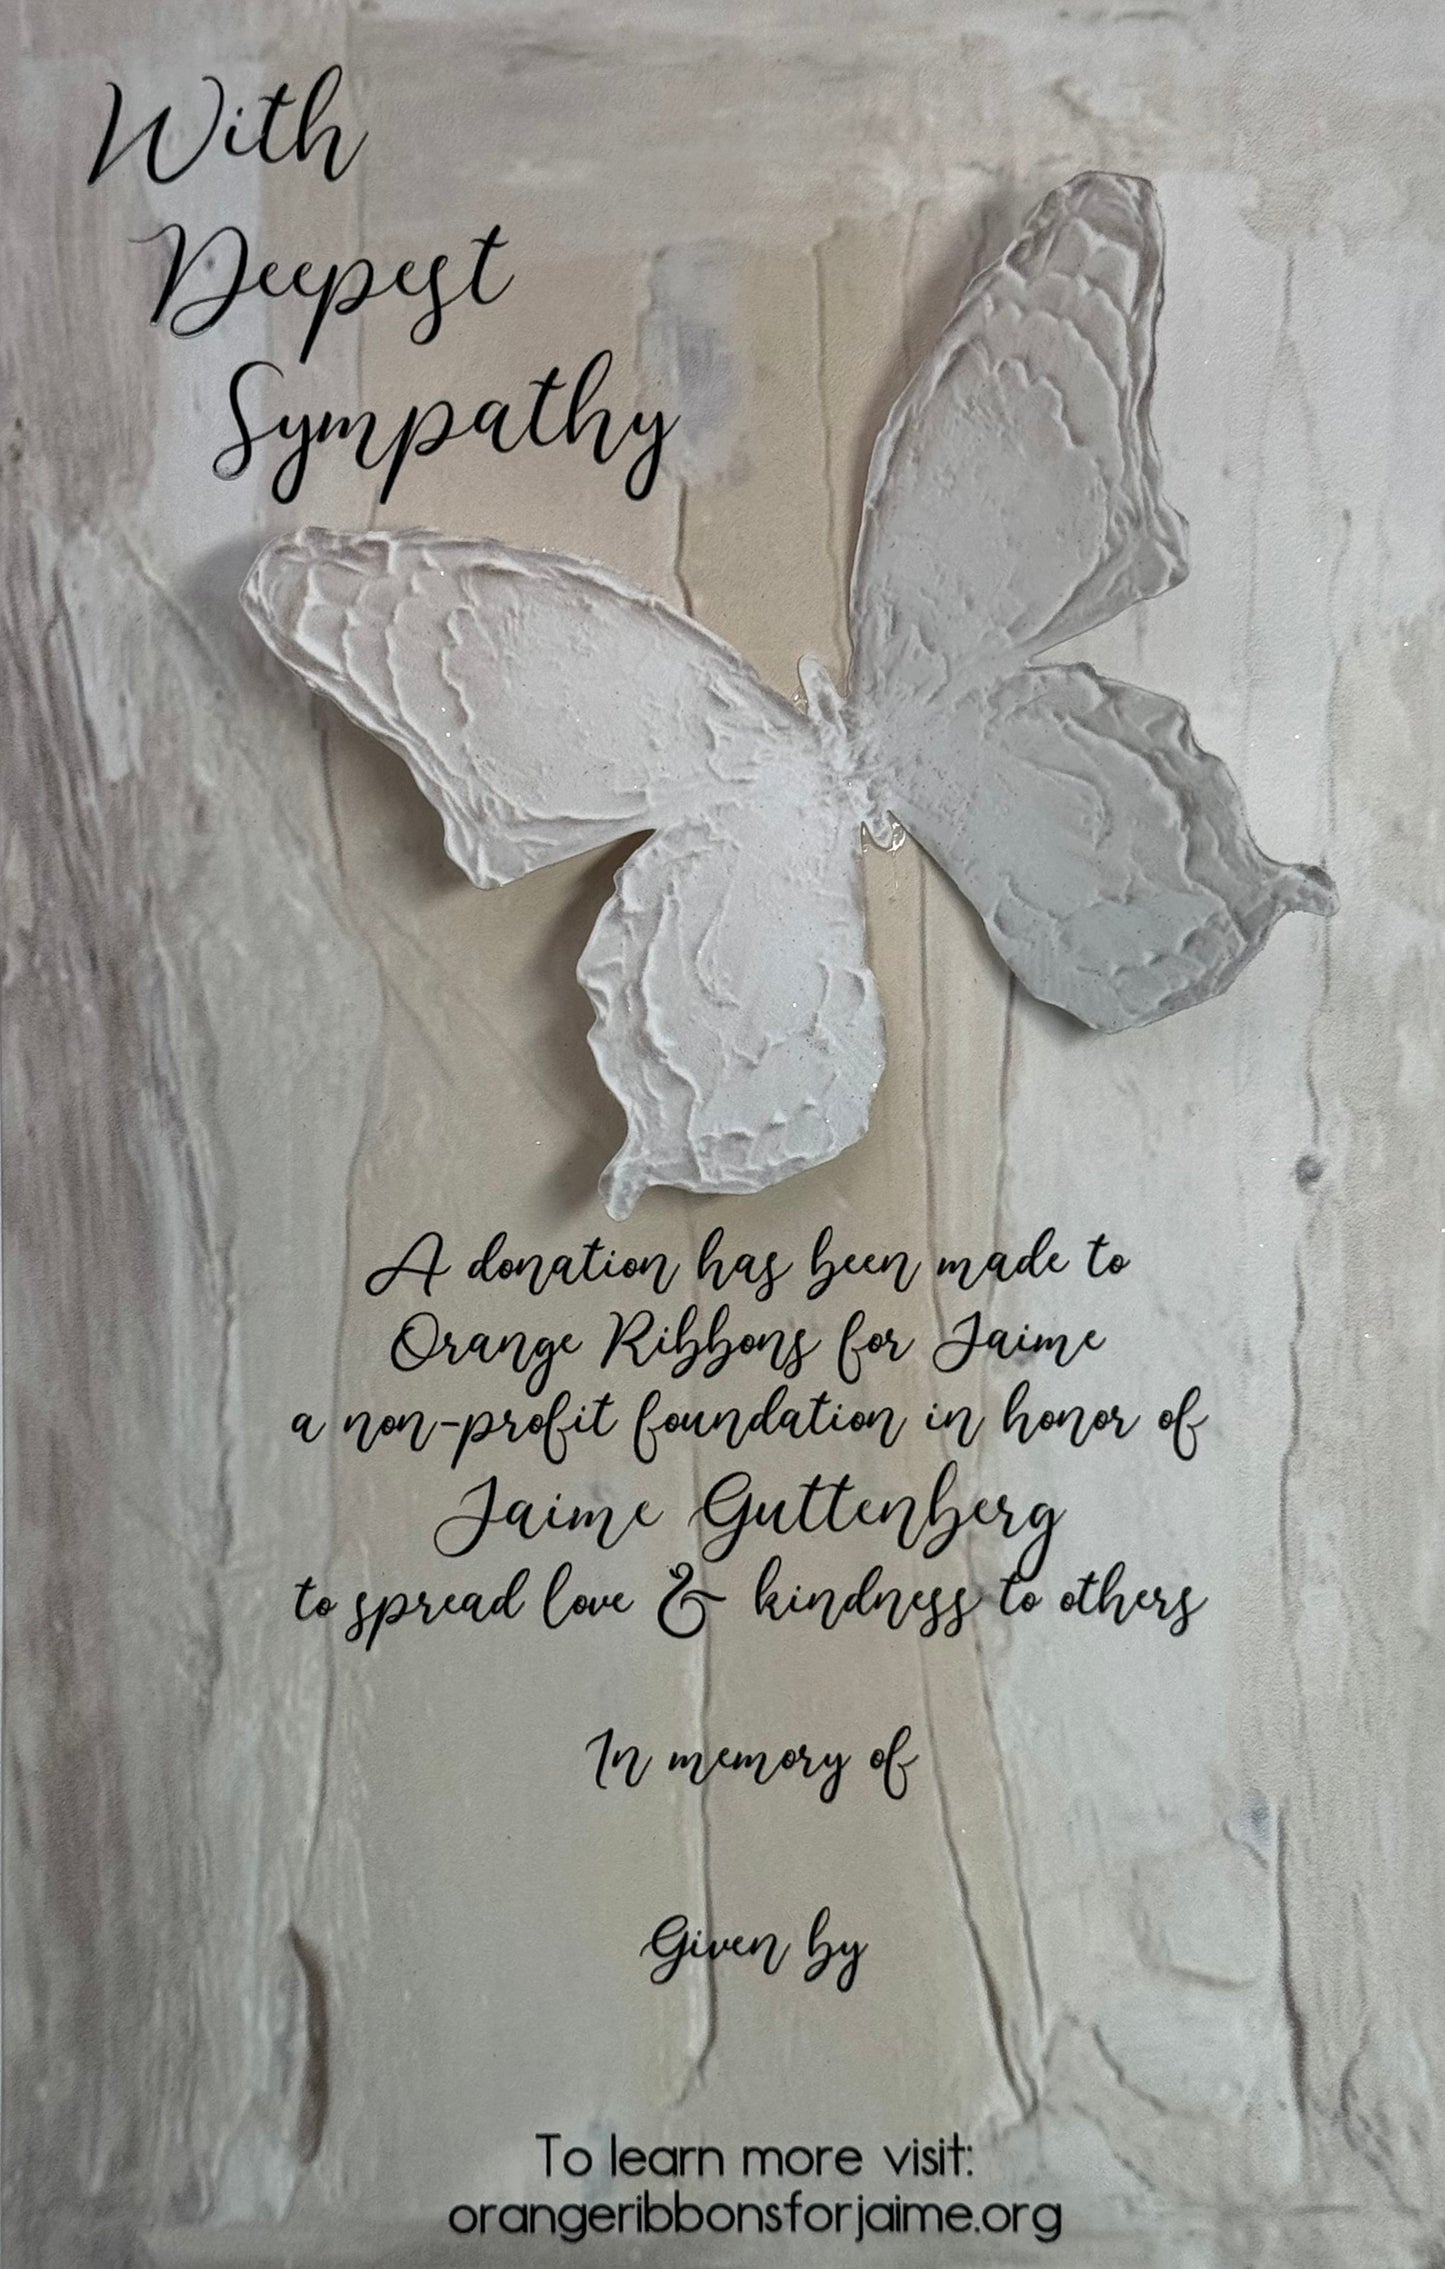 With
Deepest
Sympathy
A donation has been made to
Orange Ribbons for Jaime
a non-profit foundation in honor of
Jaime Guttenberg
to spread love & kindness to others
In memory of
Given by
To learn more visit:
orangeribbonsforjaime.org